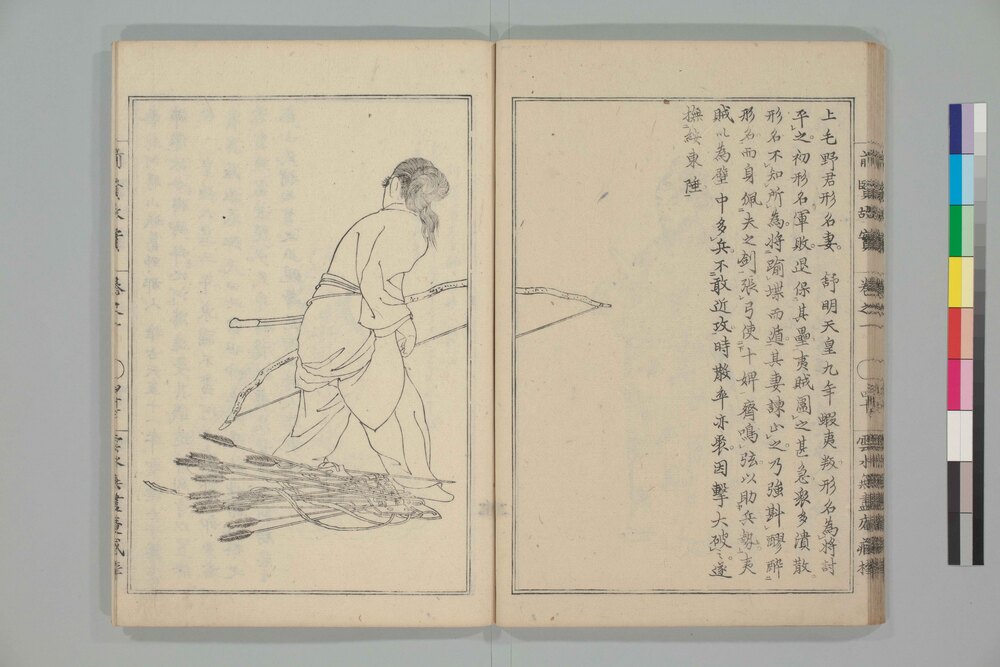 上毛野君形名妻。 舒明天皇九年蝦夷叛形名為將討
平之初形名軍敗退保其壘夷賊圍之甚急衆多潰散
形名不知所為。將踰堞而遁其妻諫止之乃強斟醪聊
形名而身佩夫之劍張弓使十婢齊鳴弦以助兵勢夷
賊以為壁中多兵不敢近攻時散卒亦聚因擊大破之遂
撫綏東陲
前賢故實
卷之一